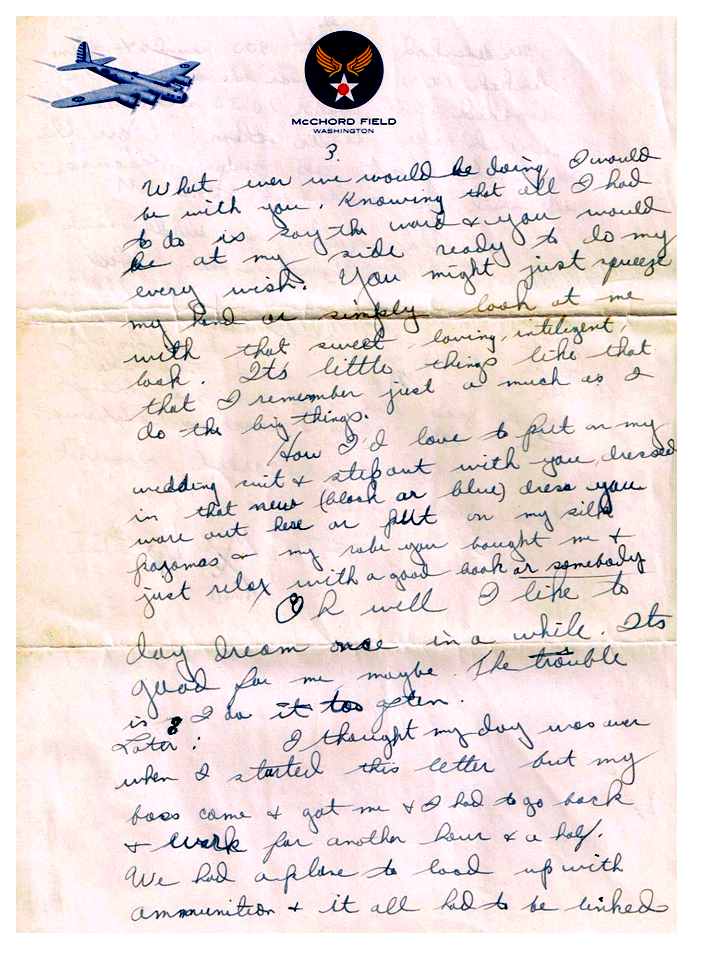 McCHORD FIELD
WASHINGTON
3.
What ever we would be doing, I would
be with you. Knowing that all I had
to do is say the word & you would
be at my side ready to do my
every wish. You might just squeeze
my hand or simply look at me
with that sweet, loving, inteligent,
look. Its little things like that
that I remember just a much as I
do the big things.
How I'd love to put on my
wedding suit & step out with you, dressed
in that new (black or blue) dress you
wore out here or put on my silk
pajamas & my robe you bought me &
just relax with a good book or somebody
Oh well I like to
day dream once in a while. Its
good for me, maybe. The trouble
is I do it too often.
Later: I thought my day was over
when I started this letter but my
boss came & got me & I had to go back
& work for another hour & a half.
We had a plane to load up with
ammunition & it all had to be linked